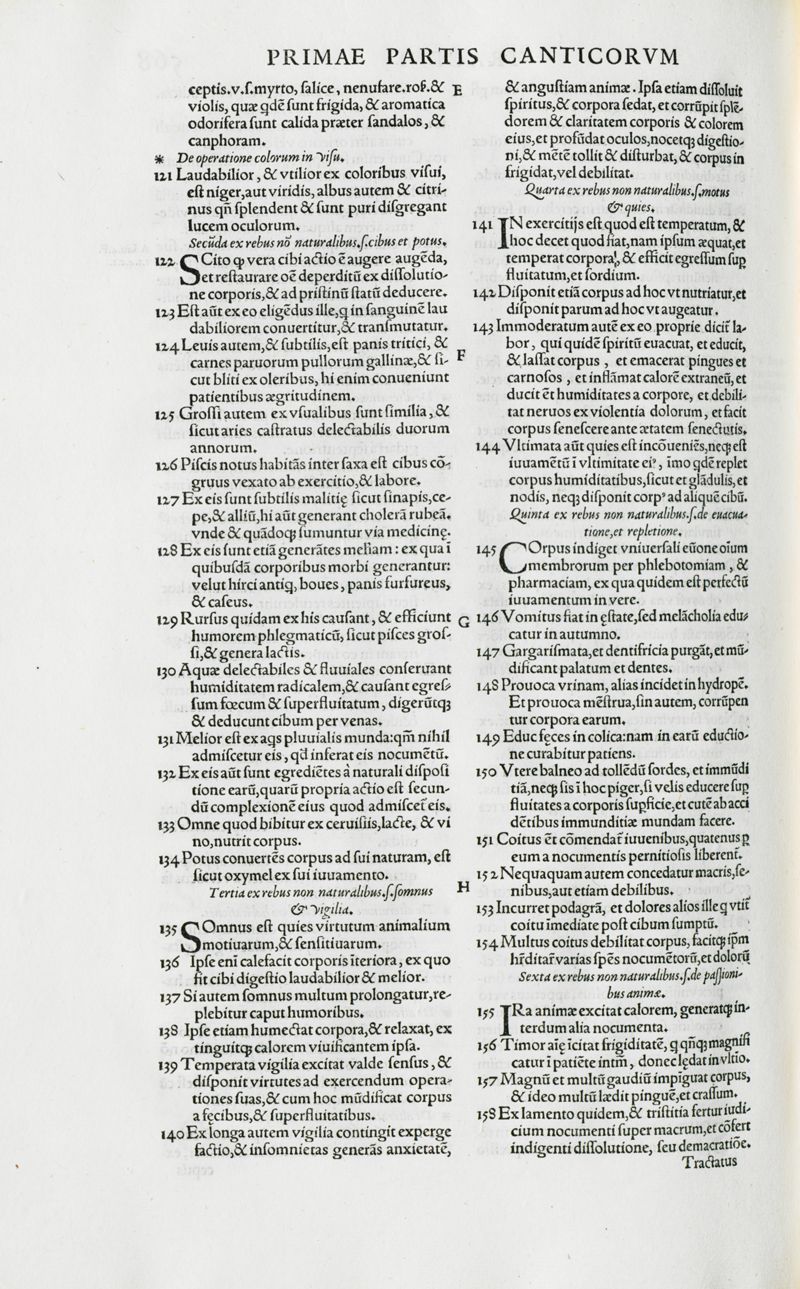 PRIMAE PARTIS CANTICORVM
ceptis.v.ſ.myrto, ſalice, nenufare.roſ.&
violis, quæ qdē ſunt frigida, & aromatica
odorifera ſunt calida præter ſandalos, &
canphoram.
* De operatione colorum in viſu.
121 Laudabilior, & vtilior ex coloribus viſui,
eſt niger, aut viridis, albus autem & citri-
nus qñ ſplendent & ſunt puri diſgregant
lucem oculorum.
Secūda ex rebus nō naturalibus.ſ.cibus et potus.
122 SCito ꝙ vera cibi actio ē augere augēda,
et reſtaurare oē deperditū ex diſſolutio-
ne corporis,& ad priſtinū ſtatū deducere.
123 Eſt aūt ex eo eligēdus ille,q in ſanguinē lau
dabiliorem conuertitur,& tranſmutatur.
124 Leuis autem,& ſubtilis,eſt panis tritici, &
carnes paruorum pullorum gallinæ,& ſi-
cut bliti ex oleribus, hi enim conueniunt
patientibus ægritudinem.
125 Groſſi autem ex vſualibus ſunt ſimilia, &
ſicut aries caſtratus delectabilis duorum
annorum.
126 Piſcis notus habitās inter ſaxa eſt cibus cō-
gruus vexato ab exercitio,& labore.
127 Ex eis ſunt ſubtilis malitię ſicut ſinapis,ce-
pe,& alliū,hi aūt generant cholerā rubeā.
vnde & quādoqꝫ ſumuntur via medicinę.
128 Ex eis ſunt etiā generātes melīam : ex qua ī
quibuſdā corporibus morbi generantur:
velut hirci antiq, boues, panis furfureus,
& caſeus.
129 Rurſus quidam ex his cauſant, & efficiunt
humorem phlegmaticū, ſicut piſces groſ-
ſi,& genera lactis.
130 Aquæ delectabiles & fluuiales conſeruant
humiditatem radicalem,& cauſant egreſ-
ſum fœcum & ſuperfluitatum, digerūtqꝫ
& deducunt cibum per venas.
131 Melior eſt ex aqs pluuialis munda:qm̄ nihil
admiſcetur eis, qd inferat eis nocumētū.
132 Ex eis aūt ſunt egrediētes à naturali diſpoſi
tione earū,quarū propria actio eſt ſecun-
dū complexionē eius quod admiſcet eis.
133 Omne quod bibitur ex ceruiſiis,lacte, & vi
no,nutrit corpus.
134 Potus conuertēs corpus ad ſui naturam, eſt
ſicut oxymel ex ſui iuuamento.
Tertia ex rebus non naturalibus.ſ.ſomnus
& vigilia.
135 SOmnus eſt quies virtutum animalium
motiuarum,& ſenſitiuarum.
136 Ipſe enī calefacit corporis īteriora, ex quo
fit cibi digeſtio laudabilior & melior.
137 Si autem ſomnus multum prolongatur,re-
plebitur caput humoribus.
138 Ipſe etiam humectat corpora,& relaxat, ex
tinguitqꝫ calorem viuificantem ipſa.
139 Temperata vigilia excitat valde ſenſus, &
diſponit virtutes ad exercendum opera-
tiones ſuas,& cum hoc mūdificat corpus
a fęcibus,& ſuperfluitatibus.
140 Ex longa autem vigilia contingit experge
factio,& inſomnietas generās anxietatē,
E
F
G
H
& anguſtiam animæ. Ipſa etiam diſſoluit
ſpiritus,& corpora ſedat, et corrūpit ſplē-
dorem & claritatem corporis & colorem
eius,et profūdat oculos,nocetqꝫ digeſtio-
ni,& mētē tollit & diſturbat,& corpus in
frigidat,vel debilitat.
Quarta ex rebus non naturalibus.ſ.motus
& quies.
141 IN exercitijs eſt quod eſt temperatum, &
hoc decet quod fiat,nam ipſum æquat,et
temperat corpora, & efficit egreſſum ſuꝑ
fluitatum,et ſordium.
142 Diſponit etiā corpus ad hoc vt nutriatur,et
diſponit parum ad hoc vt augeatur.
143 Immoderatum autē ex eo proprie dicit̄ la-
bor, qui quidē ſpiritū euacuat, et educit,
& laſſat corpus, et emacerat pingues et
carnoſos, et inflāmat calorē extraneū, et
ducit ēt humiditates a corpore, et debili-
tat neruos ex violentia dolorum, et facit
corpus ſeneſcere ante ætatem ſenectutis.
144 Vltimata aūt quies eſt incōueniēs,neqꝫ eſt
iuuamētū ī vltimitate ei⁹, īmo qdē replet
corpus humiditatibus,ſicut et glādulis,et
nodis, neqꝫ diſponit corp⁹ ad aliquē cibū.
Quinta ex rebus non naturalibus.ſ.de euacua-
tione,et repletione.
145 COrpus indiget vniuerſali euōne oīum
membrorum per phlebotomiam, &
pharmaciam, ex qua quidem eſt perfectū
iuuamentum in vere.
146 Vomitus fiat in ęſtate,ſed melācholia edu-
catur in autumno.
147 Gargariſmata,et dentifricia purgāt,et mū-
dificant palatum et dentes.
148 Prouoca vrinam, alias incidet in hydropē.
Et prouoca mēſtrua,ſin autem, corrūpen
tur corpora earum.
149 Educ fęces in colica:nam in earū eductio-
ne curabitur patiens.
150 Vtere balneo ad tollēdū ſordes, et immūdi
tiā,neqꝫ ſis ī hoc piger,ſi velis educere ſuꝑ
fluitates a corporis ſuꝑficie,et cutē ab acci
dētibus immunditiæ mundam facere.
151 Coitus ēt cōmendat̄ iuuenibus,quatenus ꝑ
eum a nocumentis pernitioſis liberent̄.
152 Nequaquam autem concedatur macris,ſe-
nibus,aut etiam debilibus.
153 Incurret podagrā, et dolores alios ille q vtit̄
coitu īmediate poſt cibum ſumptū.
154 Multus coitus debilitat corpus, facitqꝫ ipm̄
hr̄ditar̄ varias ſpēs nocumētorū,et dolorū
Sexta ex rebus non naturalibus.ſ.de paſſioni-
bus animæ.
155 IRa animæ excitat calorem, generatqꝫ in-
terdum alia nocumenta.
156 Timor aīę īcitat frigiditatē, q qn̄qꝫ magnifi
catur ī patiēte intm̄, donec lędat in vltio.
157 Magnū et multū gaudiū impīguat corpus,
& ideo multū lædit pinguē,et craſſum.
158 Ex lamento quidem,& triſtitia fertur iudi-
cium nocumenti ſuper macrum,et cōfert
indigenti diſſolutione, ſeu demacratiōe.
Tractatus